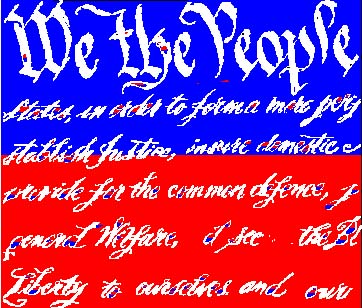 We the People
States, in order to form a more perf
stablish Justice, insure domestic
provide for the common defence, p
general Welfare, d sec the Bl
Liberty to ourselves and our